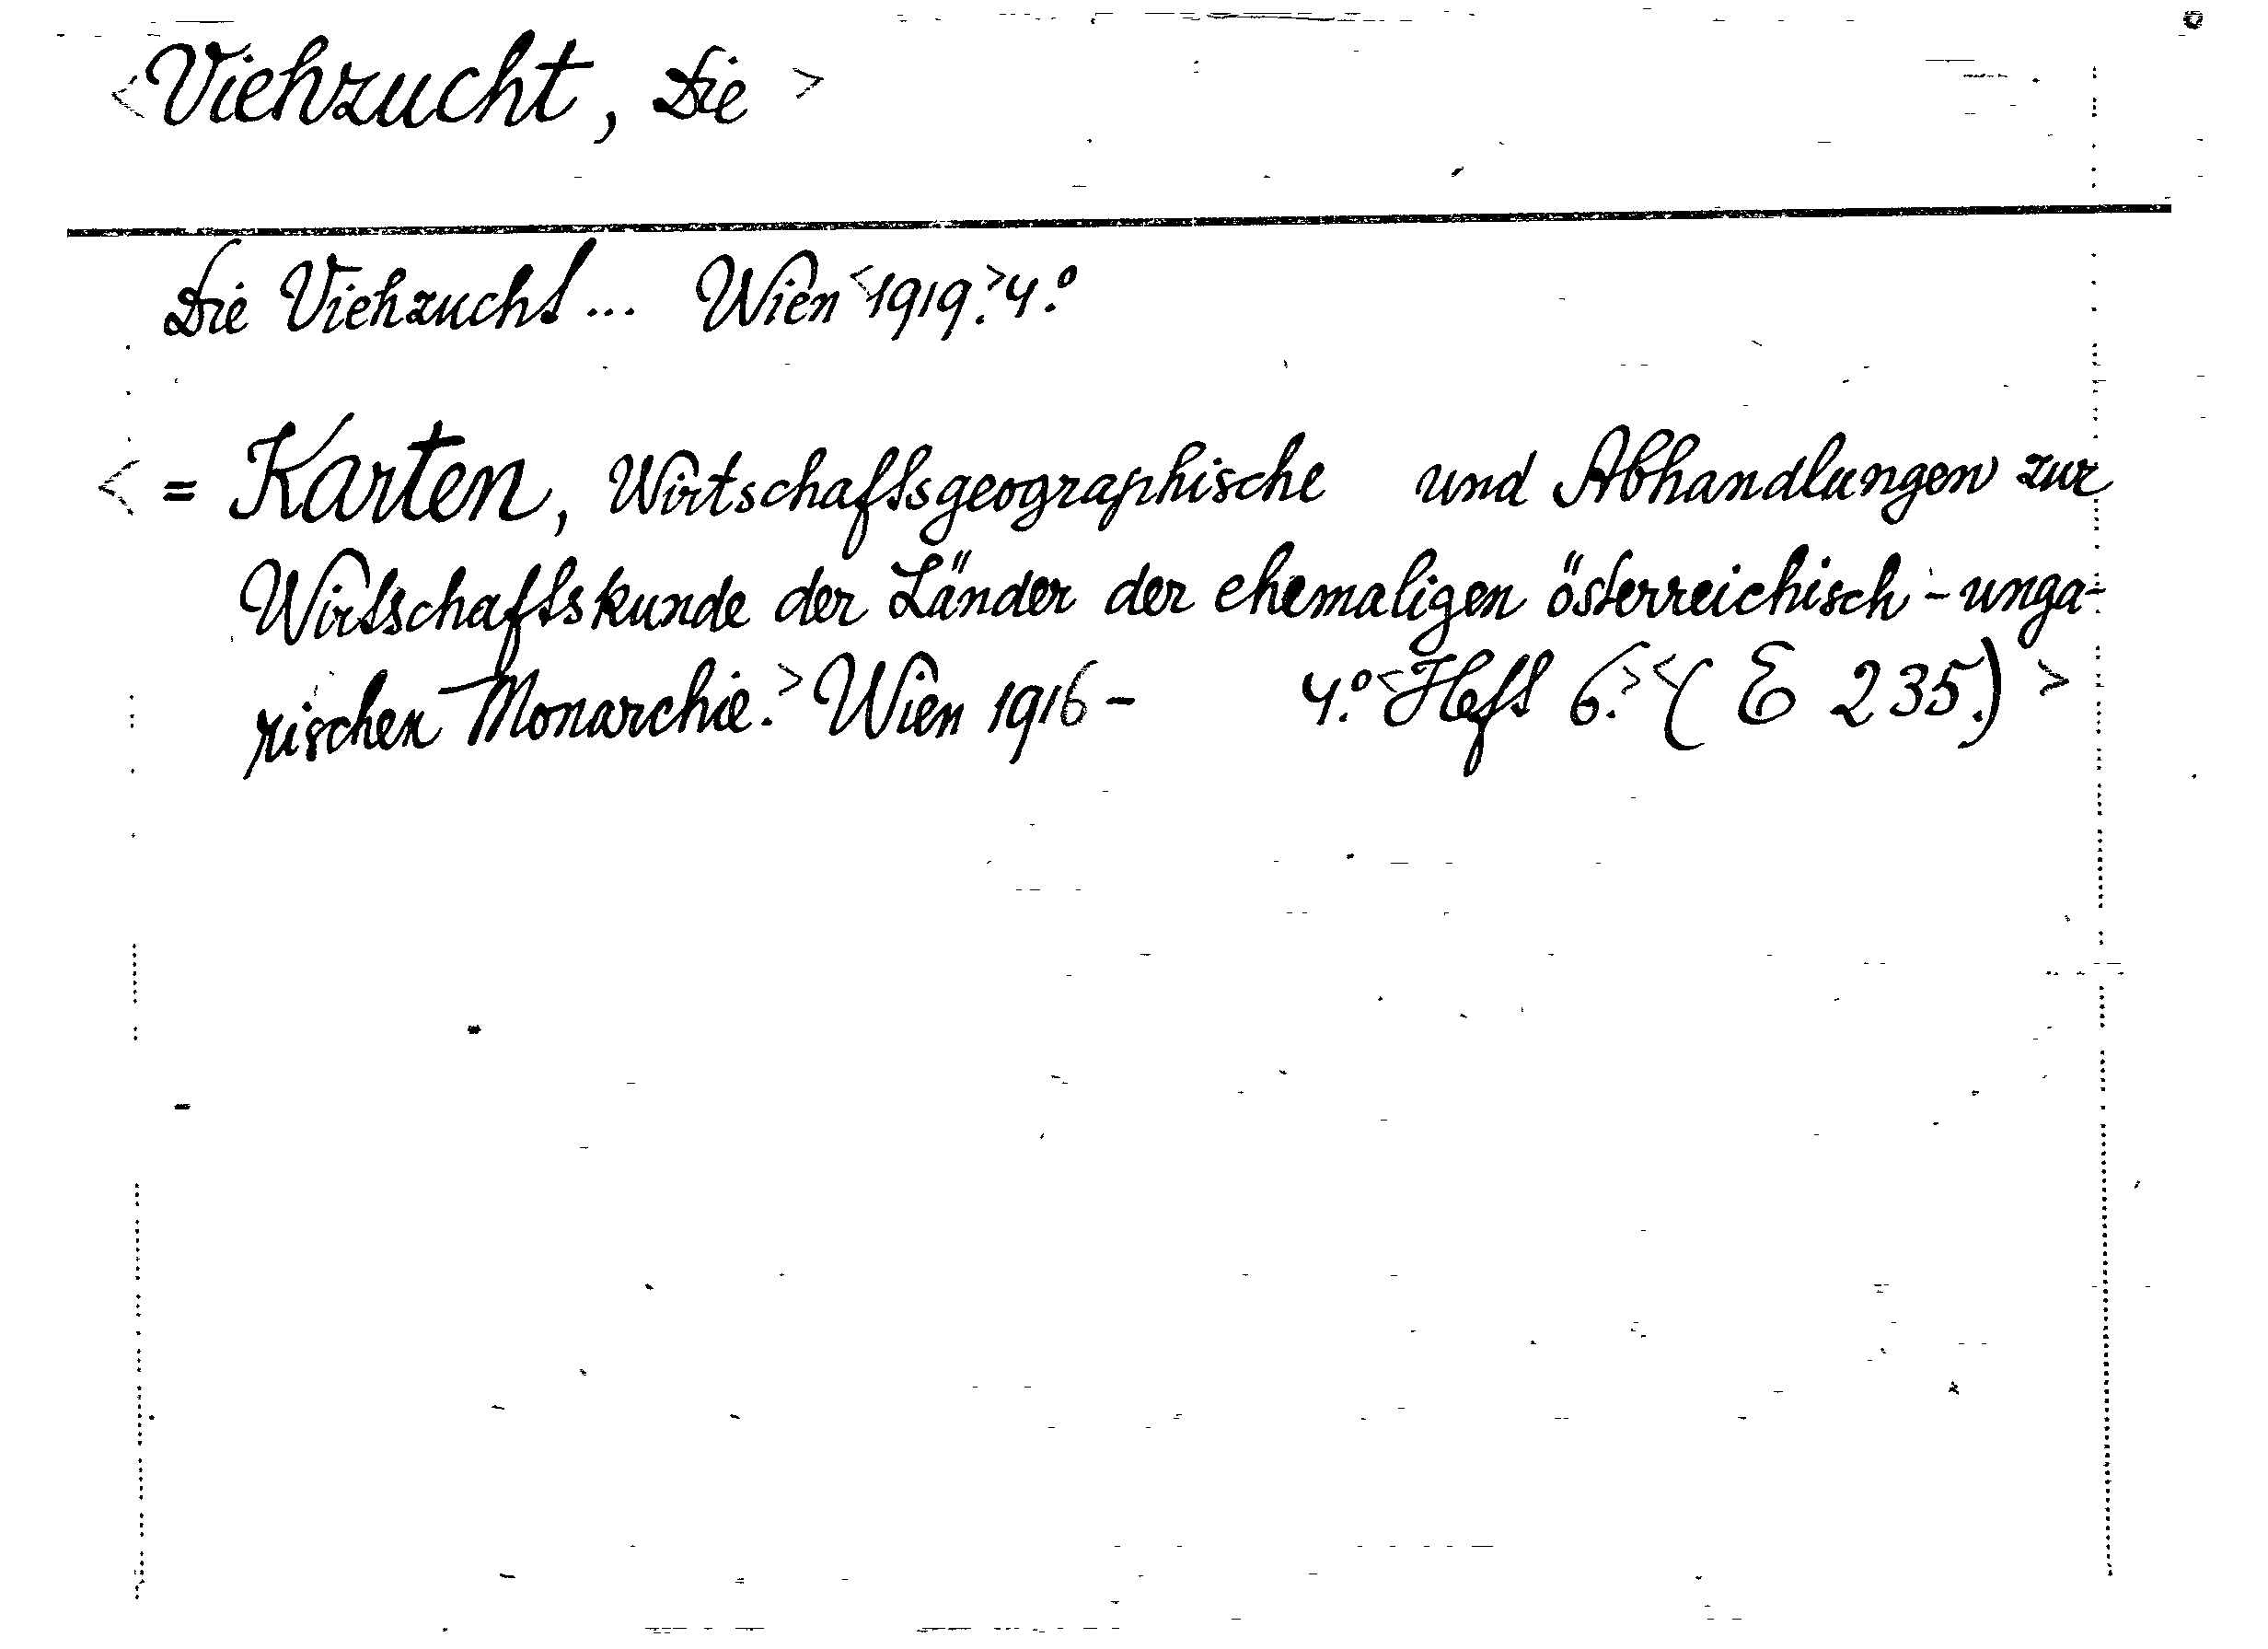 <Viehzucht, Die>
Die Viehzucht... Wien <1919.> 4.º
<= Karten, Wirtschaftsgeographische und Abhandlungen zur
Wirtschaftskunde der Länder der ehemaligen österreichisch-unga-
rischen Monarchie.> Wien 1916- 4.º <Heft 6.> <(E 235.)>